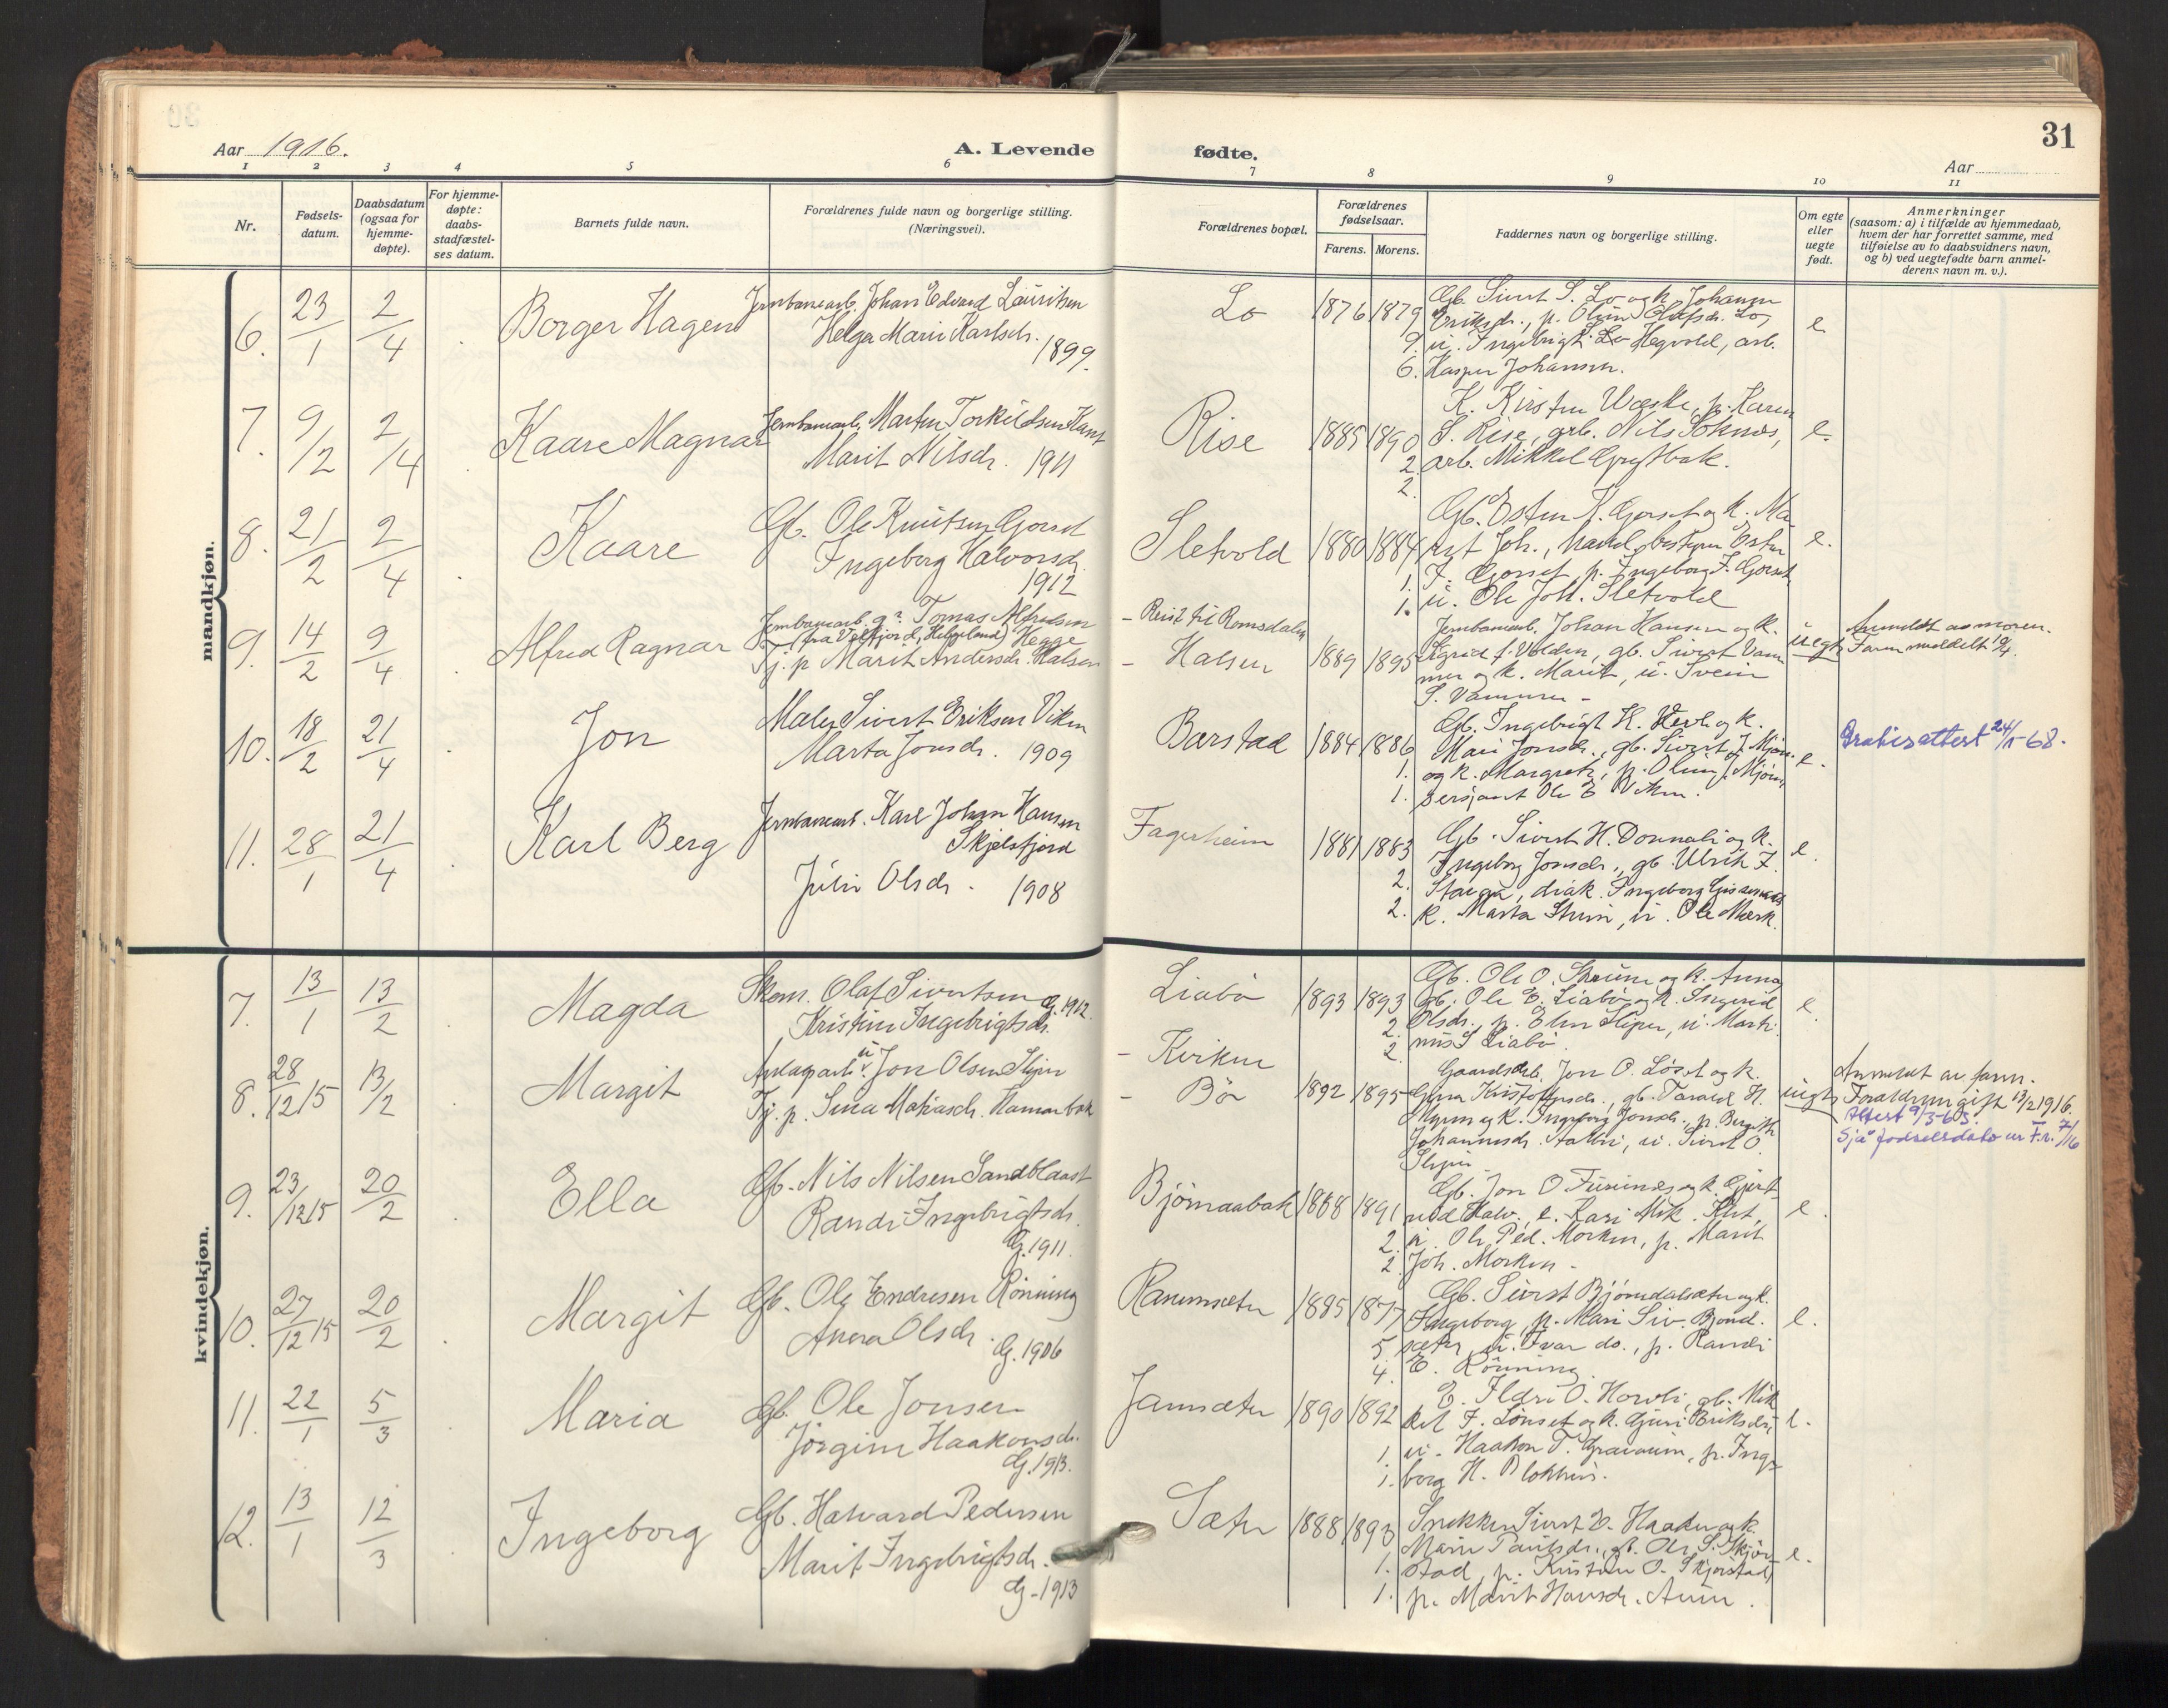 31
Aar 1916.
A. Levende fødte.
Aar
1 2 3 4 5 6 7 8 9 10 11
Nr.
Fødsels-
datum.
Daabsdatum
(ogsaa for
hjemme-
døpte).
For hjemme-
døpte:
daabs-
stadfæstel-
ses datum.
Barnets fulde navn.
Forældrenes fulde navn og borgerlige stilling.
(Næringsvei).
Forældrenes bopæl.
Forældrenes
fødselsaar.
Farens. Morens.
Faddernes navn og borgerlige stilling.
Om egte
eller
uegte
født.
Anmerkninger
(saasom: a) i tilfælde av hjemmedaab,
hvem der har forrettet samme, med
tilføielse av to daabsvidners navn,
og b) ved uegtefødte barn anmel-
derens navn m. v.).
mandkjøn.
6. 23/1 2/4 Borger Hagen
Jernbanearb. Johan Edvard Lauritsen
Helga Marie Karlsdr.
1899.
Lo 1876 1879
Gb. Sivert S. Lo og k. Johanna
Eriksdr., p. Olina Olufsdr. Lo,
9. u. Ingebrigt Hegvold, arb.
6. Kasper Johansen.
e
7. 9/2 2/4 Kaare Magnar
Jernbanearb. Morten Torkildsen Kant
Marit Nilsdr. 1911
Rise 1885 1890
K. Kirsten Wæske, p. Karen
S. Rise, arb. Nils Soknes,
2. arb. Mikkel
2.
e.
8. 21/2 2/4 Kaare
Gb. Ole Knutsen Gorset
Ingeborg Halvorsdr.
1912
Sletvold 1880 1884
Gb. Esten K. Gorset og k. Ma-
rit Joh., handelsbestyrer Esten
1. F. Gorset, p. Ingeborg F. Gorset
1. u. Ole Joh. Sletvold
e.
9. 14/2 9/4 Alfred Ragnar
Jernbanearb. g? Tomas Alfredsen
(fra Velfjord, Helgeland) Hegge
Tj. p. Marit Andersdr. Halsen
- Reist til Romsdalen
- Halsen 1889 1895
Jernbanearb. Johan Hansen og k.
Sigrid f. Volden, gb. Sivert Vam-
mer og k. Marit, u. Svein
S. Vammer -
uegte
Anmeldt av moren.
Faren meddelt
10. 18/2 21/4 Jon
Maler Sivert Eriksen Viken
Marta Jonsdr. 1909
Barstad 1884 1886
Gb. Ingebrigt H. og k.
Mari Jonsdr., gb. Sivert J. Mjøen
1. og k. Margrete, p. Olina J. Mjøen,
1. Sersjant Ole E Viken.
e.
Gratisattest 24/1-68.
11. 28/1 21/4 Karl Berg
Jernbanearb. Karl Johan Hansen
Skjelsfjord
Julie Olsdr. 1908
Fagerheim 1881 1883
Gb. Sivert H. Donnali og k.
Ingeborg Jonsdr., gb. Ulrik F.
2. diak. Ingeborg
2. k. Marta Stuen, u. Ole Mærk.
e.
kvindekjøn.
7. 13/1 13/2 Magda
Skom. Olaf Sivertsen G. 1912.
Kristine Ingebrigtsdr.
Liabø 1893 1893
Gb. Ole O. og k. Anna
Gb. Ole E. Liabø og k. Ingerid
2. Olsdr., p. Elen Stipen, u. Marti-
2. nus S Liabø.
e
8. 28/12 15 13/2 Margit
Anlægsarb. u. Jon Olsen
Tj. p. Sina Matiasdr. Hamarbak
- Kvikne
- Bø 1892 1895
Gaardsarb. Jon O. Løset og k.
Gjina Kristoffersdr., gb. Tarald H.
Myren og k. Ingeborg Jonsdr., p. Bergitte
Johannesdr., u. Sivert O.
uegte
Anmeldt av faren.
Forældrene gift 13/2 1916.
Attest 9/3-63.
Sjå fødselsdato
9. 23/12 15 20/2 Ella
Gb. Nils Nilsen Sandblaast
Randi Ingebrigtsdr.
G. 1911.
Bjørnaabak 1888 1891
Gb. Jon O. Furunes og k. Gjert-
rud Halv., e. Kari Mik.
2. u. Ole Ped. Morken, p. Marit
2. Joh. Morken -
e.
10. 27/12 15 20/2 Margit
Gb. Ole Endresen Rønning
Anna Olsdr. G. 1906
1895 1877
Gb. Sivert Bjørndalsæter og k.
Ingeborg, p. Mari Siv. Bjørnd.
5. sæter, u. Ivar do., p. Randi
4. E. Rønning.
e.
11. 22/1 5/3 Maria
Gb. Ole Jonsen
Jørgine Haakonsdr.
G. 1913.
Jamsæter 1890 1892
E. Ildri O. Horvli, gb. Mik-
kel F. Lønset og k. Guri Eriksdr.,
1 u. Haakon T. Grauaune, p. Inge-
1. borg H.
e.
12. 13/1 12/3 Ingeborg
Gb. Halvard Pedersen
Marit Ingebrigtsdr.
G. 1913
Sæter 1888 1893
Snekker Sivert E. Haaker og k.
Mari Paulsdr., gb. Ole S. Skjør-
1. stad, p. Kristine O. Skjørstad,
1. p. Marit Hansdr. Aune.
e.